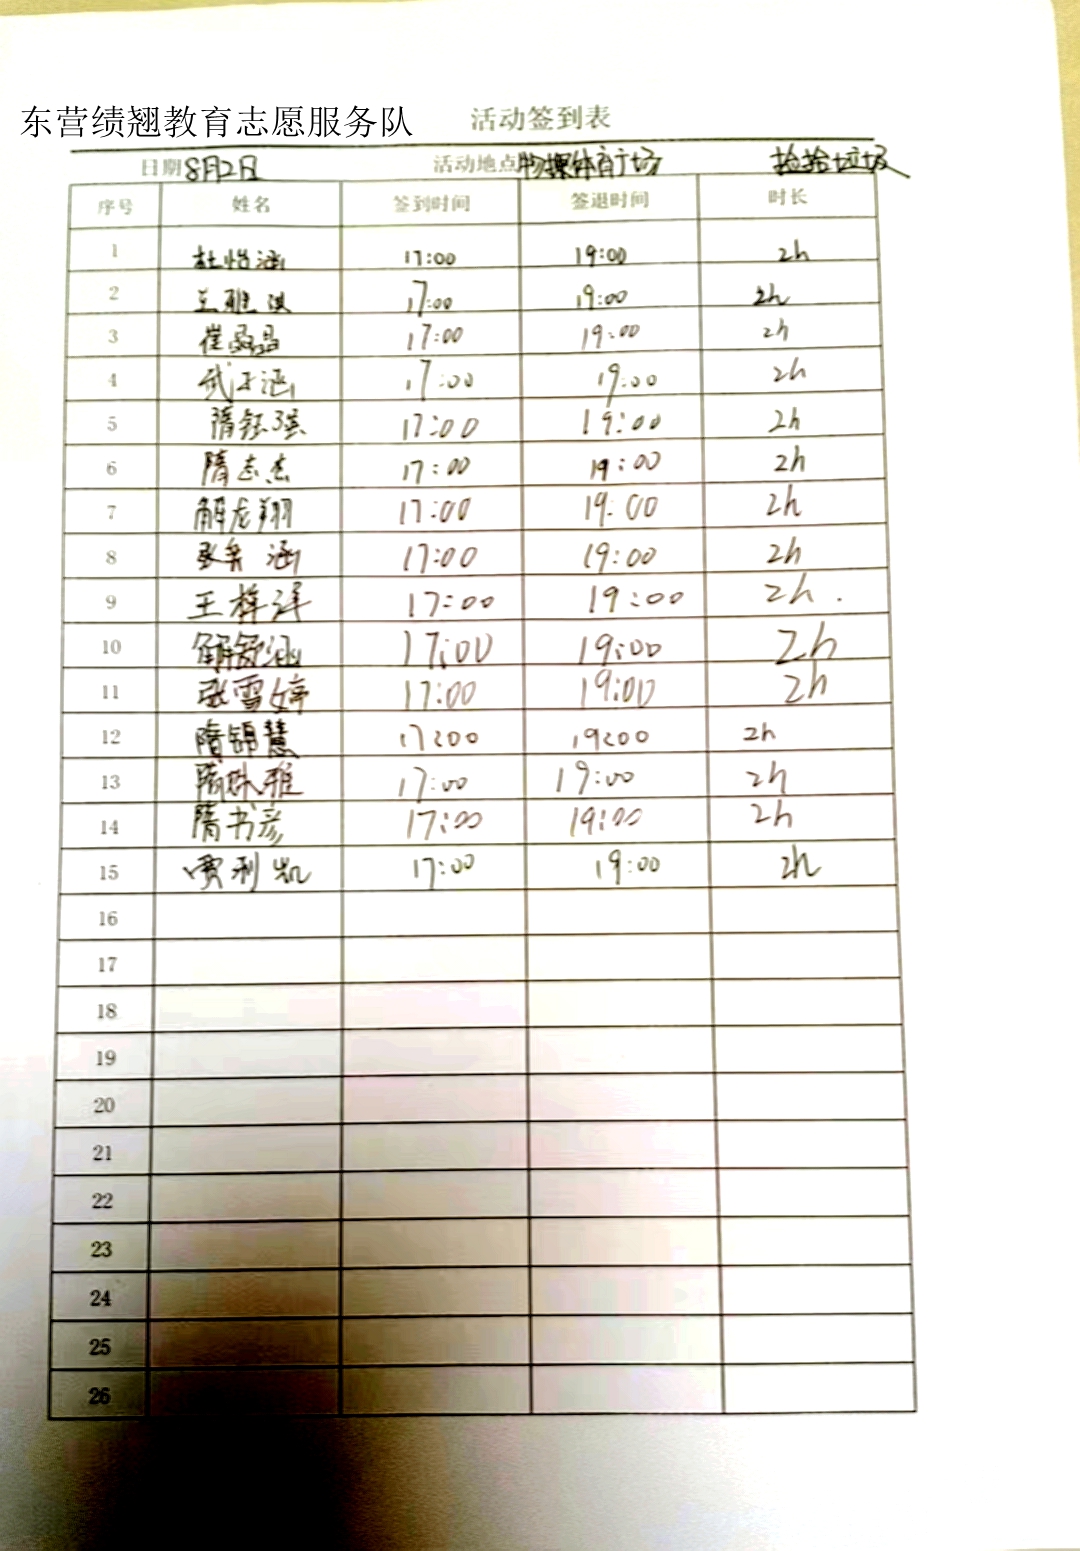 东营绩翘教育志愿服务队 活动签到表
日期8月2日 活动地点 体育广场 捡拾垃圾
序号 姓名 签到时间 签退时间 时长
1 杜怡涵 17:00 19:00 2h
2 王雅淇 17:00 19:00 2h
3 崔晶 17:00 19:00 2h
4 武子涵 17:00 19:00 2h
5 隋钰琪 17:00 19:00 2h
6 隋志杰 17:00 19:00 2h
7 解龙翔 17:00 19:00 2h
8 张涵 17:00 19:00 2h
9 王梓洋 17:00 19:00 2h.
10 解舒涵 17:00 19:00 2h
11 张雪婷 17:00 19:00 2h
12 隋锦慧 17:00 19:00 2h
13 隋雅 17:00 19:00 2h
14 隋书彦 17:00 19:00 2h
15 贾利凯 17:00 19:00 2h
16
17
18
19
20
21
22
23
24
25
26